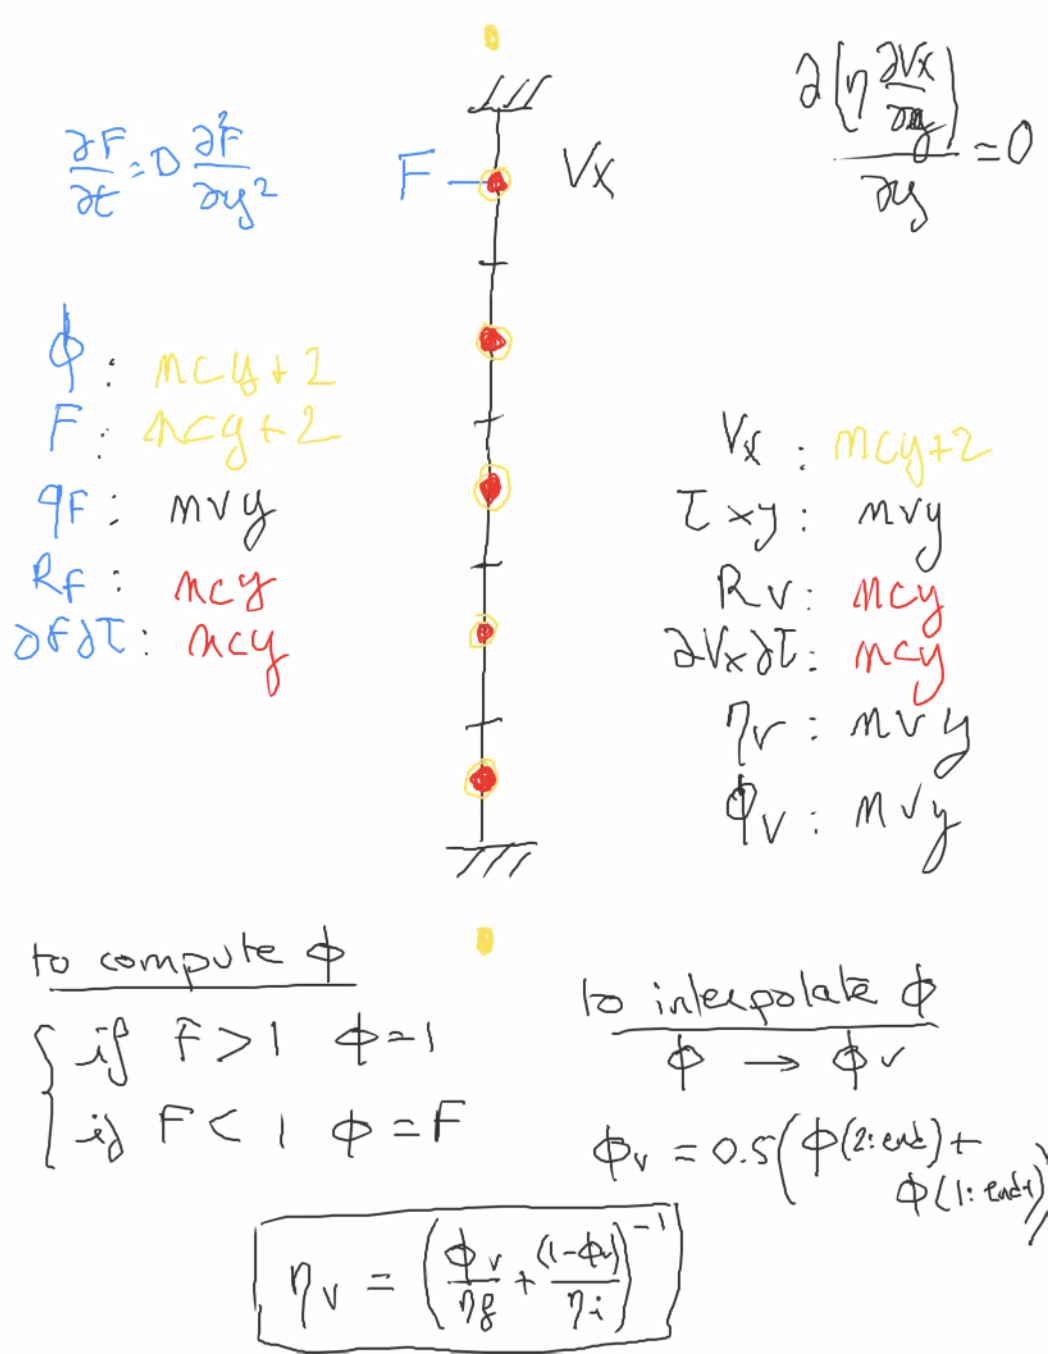 ∂F/∂t = D ∂²F/∂y²
F
Vx
∂(η ∂Vx/∂y)/∂y = 0
ϕ : ncy+2
F : ncy+2
qF : nvy
RF : ncy
∂F∂τ : ncy
Vx : ncy+2
τxy : nvy
Rv : ncy
∂Vx∂τ : ncy
ηv : nvy
ϕv : nvy
to compute ϕ
if F > 1 ϕ = 1
if F < 1 ϕ = F
to interpolate ϕ
ϕ → ϕv
ϕv = 0.5(ϕ(2:end) +
ϕ(1:end-1))
ηv = (ϕv/ηg + (1-ϕv)/ηi)^-1